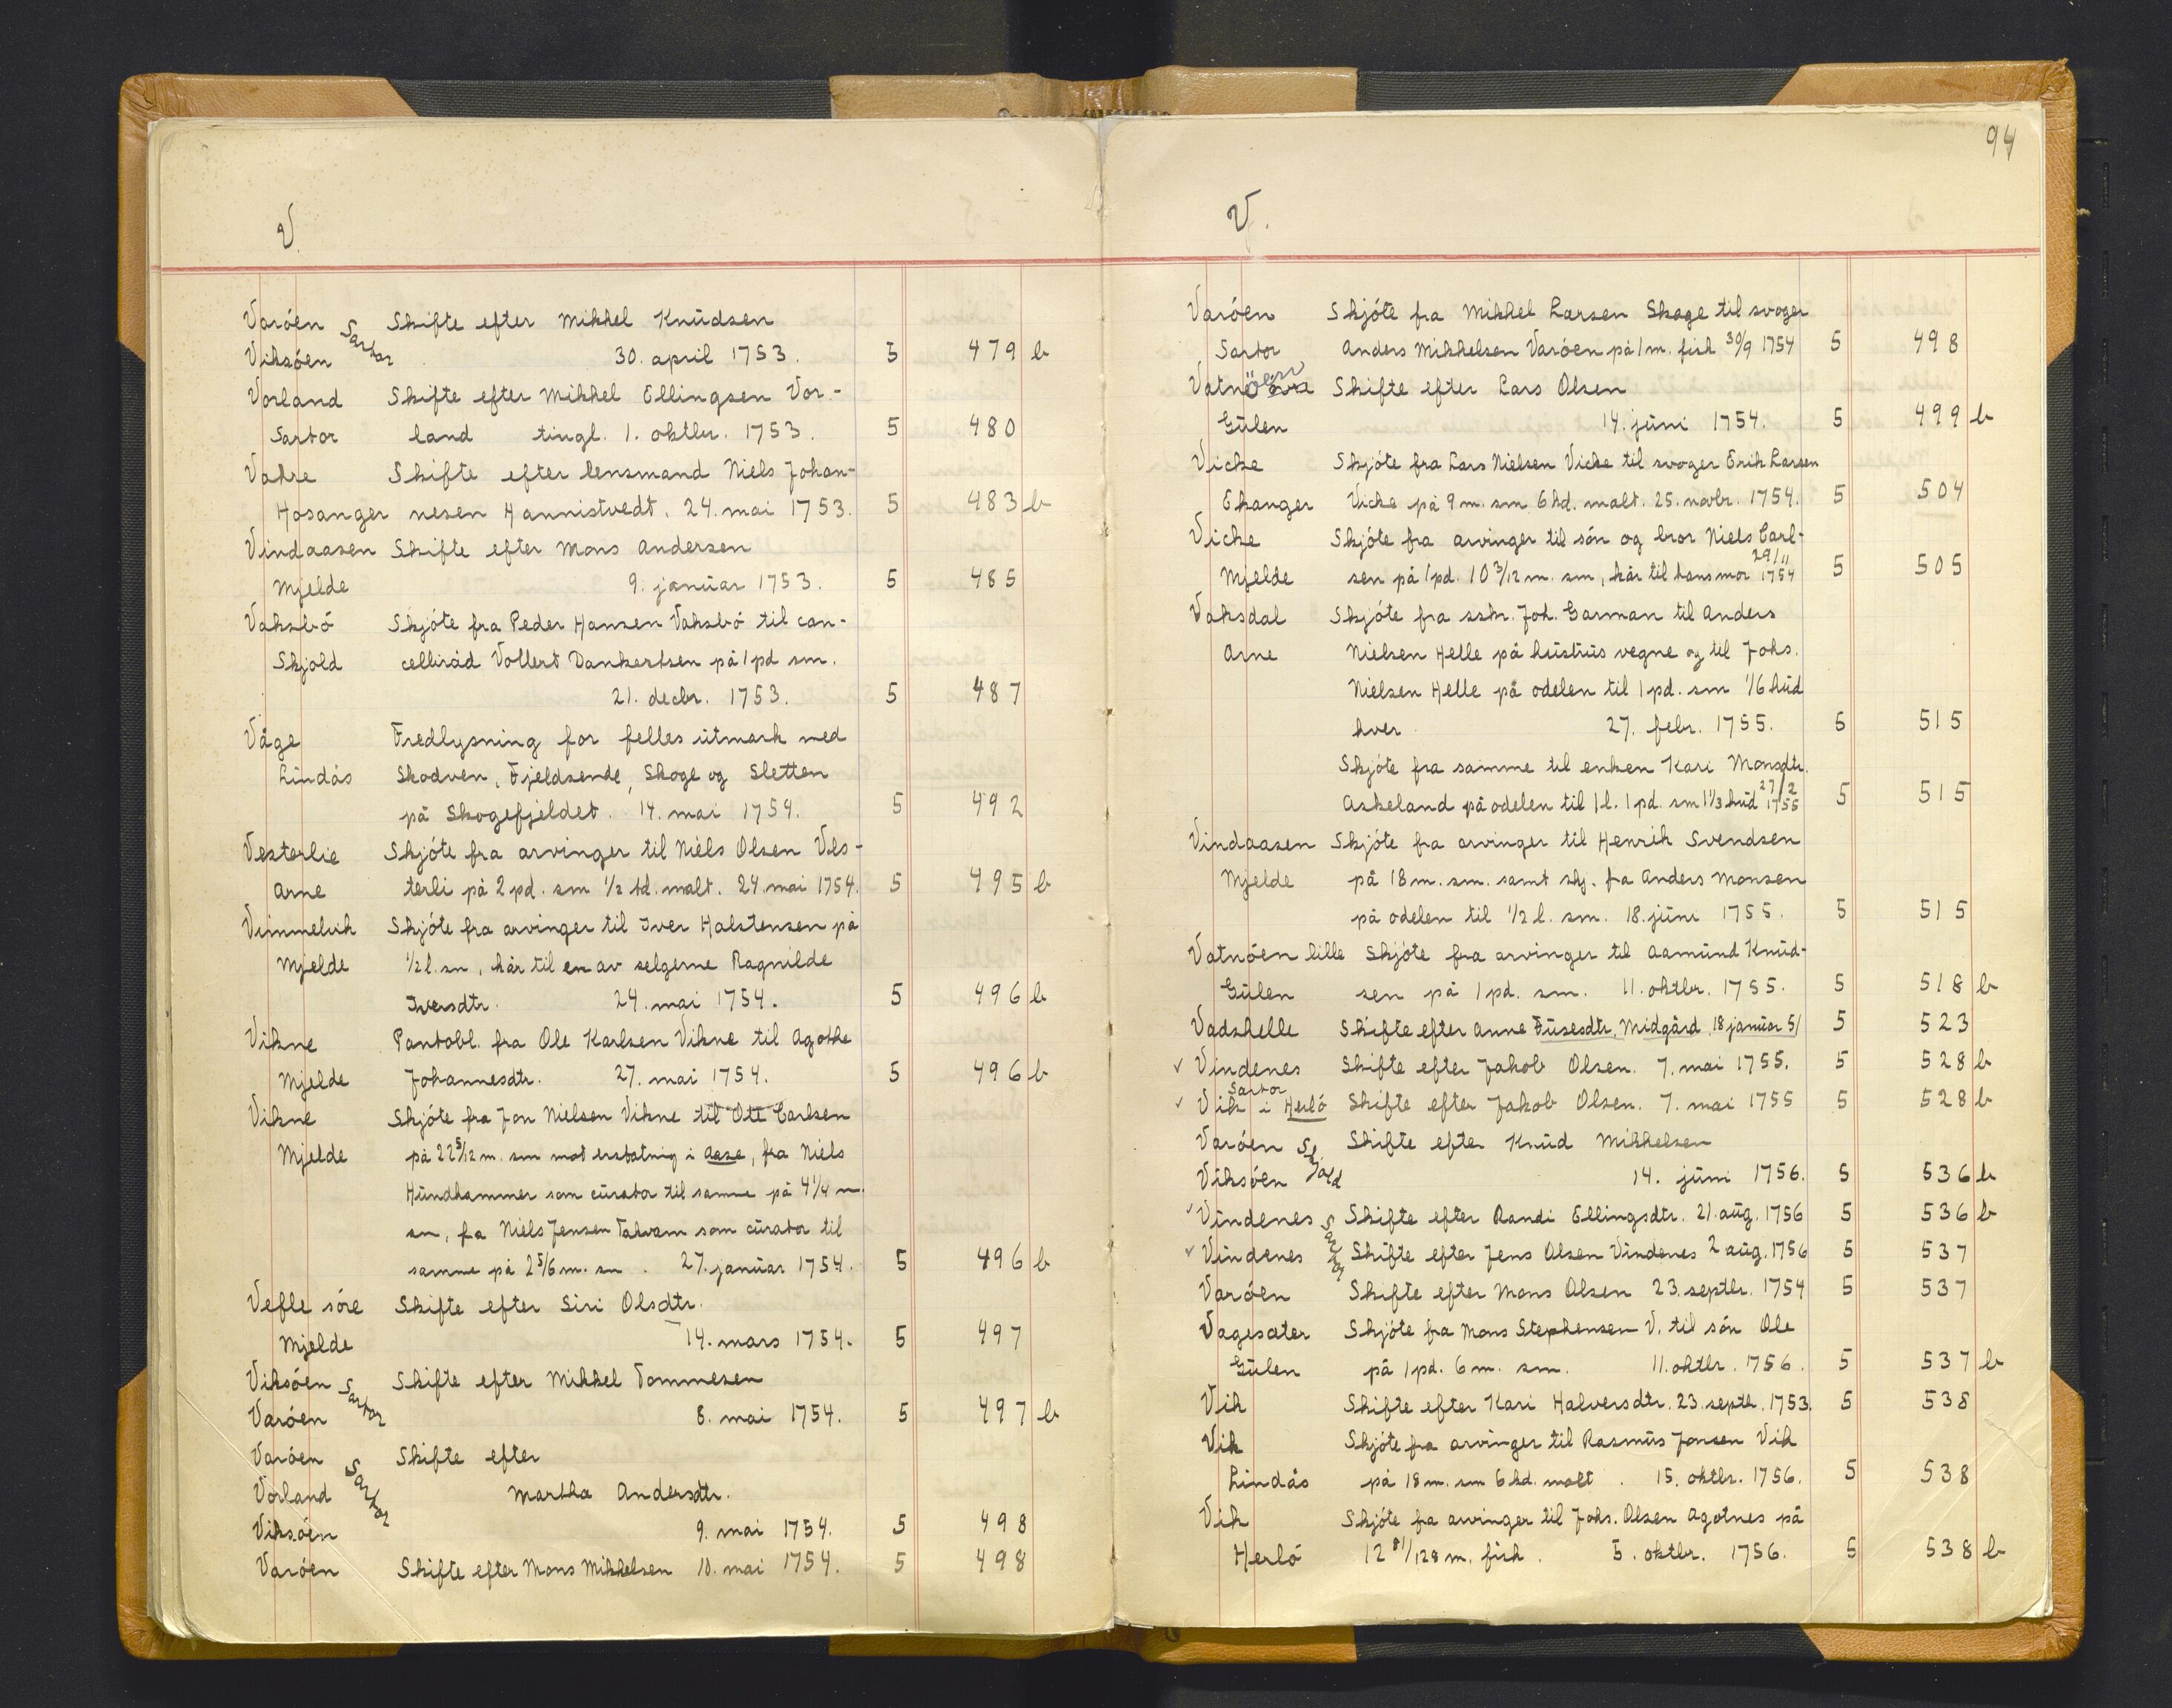 V.
Varöen Sartor Skifte efter Mikkel Knudsen
Viksöen 30. april 1753. 5 479 b
Vorland Skifte efter Mikkel Ellingsen Vor-
Sartor land tingl. 1. oktbr. 1753. 5 480
Vakre Skifte efter lensmand Niels Johan-
Hosanger nesen Hannistvedt. 24. mai 1753. 5 483 b
Vindaasen Skifte efter Mons Andersen
Mjelde 9. januar 1753. 5 485
Vaksbö Skjöte fra Peder Hansen Vaksbö til can-
Skjold celliråd Vollert Dankertsen på 1 pd sm.
21. decbr. 1753. 5 487
Våge Fredlysning for felles utmark med
Lindås Skodven, Fjeldsende, Skoge og Sletten
på Skogefjeldet. 14. mai 1754. 5 492
Vesterlie Skjöte fra arvinger til Niels Olsen Ves-
Arne terli på 2 pd. sm ½ td. malt. 24. mai 1754. 5 495 b
Vimmelvik Skjöte fra arvinger til Iver Halstensen på
Mjelde ½ l. sm, kår til en av selgerne Ragnilde
Iversdtr. 24. mai 1754. 5 496 b
Vikne Pantobl. fra Ole Karlsen Vikne til Agothe
Mjelde Johannesdtr. 27. mai 1754. 5 496 b
Vikne Skjöte fra Jon Nielsen Vikne til Ott Carlsen
Mjelde på 22 5/12 m. sm mot erstatning i Aase, fra Niels
Hundhammer som curator til samme på 4 1/4 m.
sm, fra Niels Jensen Takvam som curator til
samme på 2 5/6 m. sm. 27. januar 1754. 5 496 b
Vefle söre Skifte efter Siri Olsdtr.
Mjelde 14. mars 1754. 5 497
Viksöen Sartor Skifte efter Mikkel Tommesen
Varöen 8. mai 1754. 5 497 b
Varöen Sartor Skifte efter
Vorland Martha Andersdtr.
Viksöen 9. mai 1754. 5 498
Varöen Skifte efter Mons Mikkelsen 10. mai 1754. 5 498
94
V.
Varöen Skjöte fra Mikkel Larsen Skage til svoger
Sartor Anders Mikkelsen Varöen på 1 m. fisk 30/9 1754 5 498
Vatne Skifte efter Lars Olsen
Gulen 14. juni 1754. 5 499 b
Vicke Skjöte fra Lars Nielsen Vicke til svoger Erik Larsen
Ekanger Vicke på 9 m. sm 6 kd. malt. 25. novbr. 1754. 5 504
Vicke Skjöte fra arvinger til sön og bror Niels Carl-
Mjelde sen på 1 pd. 10 3/12 m. sm, kår til hans mor 29/11 1754 5 505
Vaksdal Skjöte fra sskr. Joh. Garman til Anders
Arne Nielsen Helle på hustrus vegne og til Johs.
Nielsen Helle på odelen til 1 pd. sm 1/6 hud
hver 27. febr. 1755. 5 515
Skjöte fra samme til enken Kari Monsdtr.
Askeland på odelen til 1 l. 1 pd. sm 1 1/3 hud 27/2 1755 5 515
Vindaasen Skjöte fra arvinger til Henrik Svendsen
Mjelde på 18 m. sm. samt skj. fra Anders Monsen
på odelen til ½ l. sm. 18. juni 1755. 5 515
Vatnöen lille Skjöte fra arvinger til Aamund Knud-
Gulen sen på 1 pd. sm. 11. oktbr. 1755. 5 518 b
Vadshelle Skifte efter Anne Fusesdtr. Midgård. 18 januar 51 5 523
✓ Vindenes Skifte efter Jakob Olsen. 7. mai 1755. 5 528 b
Sartor
✓ Vik i Herlö Skifte efter Jakob Olsen. 7. mai 1755 5 528 b
Varöen Skjold Skifte efter Knud Mikkelsen
Viksöen 14. juni 1756. 5 536 b
✓ Vindenes Sartor Skifte efter Randi Ellingsdtr. 21. aug. 1756 5 536 b
✓ Vindenes Skifte efter Jens Olsen Vindenes 2 aug. 1756 5 537
Varöen Skifte efter Mons Olsen 23. septbr. 1754 5 537
Vagesæter Skjöte fra Mons Stephensen V. til sön Ole
Gulen på 1 pd. 6 m. sm. 11. oktbr. 1756. 5 537 b
Vik Skifte efter Kari Halversdtr. 23. septb. 1753. 5 538
Vik Skjöte fra arvinger til Rasmus Jonsen Vik
Lindås på 18 m. sm 6 kd. malt. 15. oktbr. 1756. 5 538
Vik Skjöte fra arvinger til Johs. Olsen Agotnes på
Herlö 12 81/128 m. fisk. 5. oktbr. 1756. 5 538 b